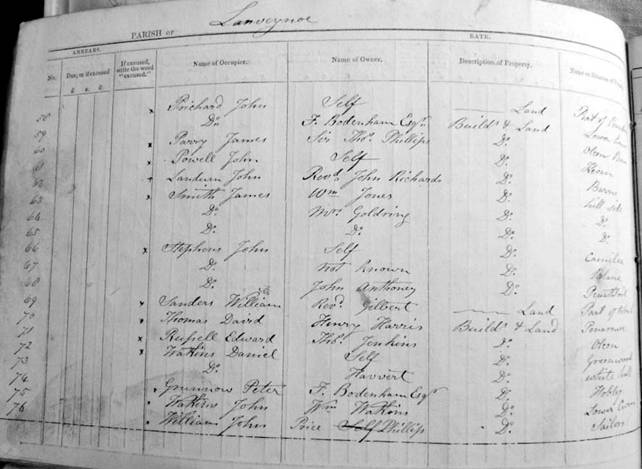 PARISH OF Lanveynoe
RATE.
ARREARS.
No. Due, or if excused £ s. d. If excused, write the word "excused." Name of Occupier. Name of Owner. Description of Property. Name or Situation of
58 x Prichard John Self Land Part of
59 Do. F. Bodenham Esqr. Builds & Land
60 x Parry James Sir Thos. Phillips Do. Olven
x Powell John Self Do.
62 x Landurn John Revd. John Richards Do.
63 x Smith James Wm Jones Do. Hill side
64 Do. Mr. Goldring Do. Do.
65 Do. Do. Do. Do.
66 x Stephens John Self Do.
67 Do. Not Known Do.
68 Do. John Anthoney Do.
69 x Sanders William Revd. Gilbert Land Part of
70 x Thomas David Henry Harris Builds & Land
71 x Russell Edward Thos. Jenkins Do. Olven
72 x Watkins Daniel Self Do.
73 Do. Havvert Do. White
74 Grunnow Peter F. Bodenham Esqr. Do.
75 Watkins John Wm Watkins Do. Lower
76 Williams John Price Self Phillips Do.